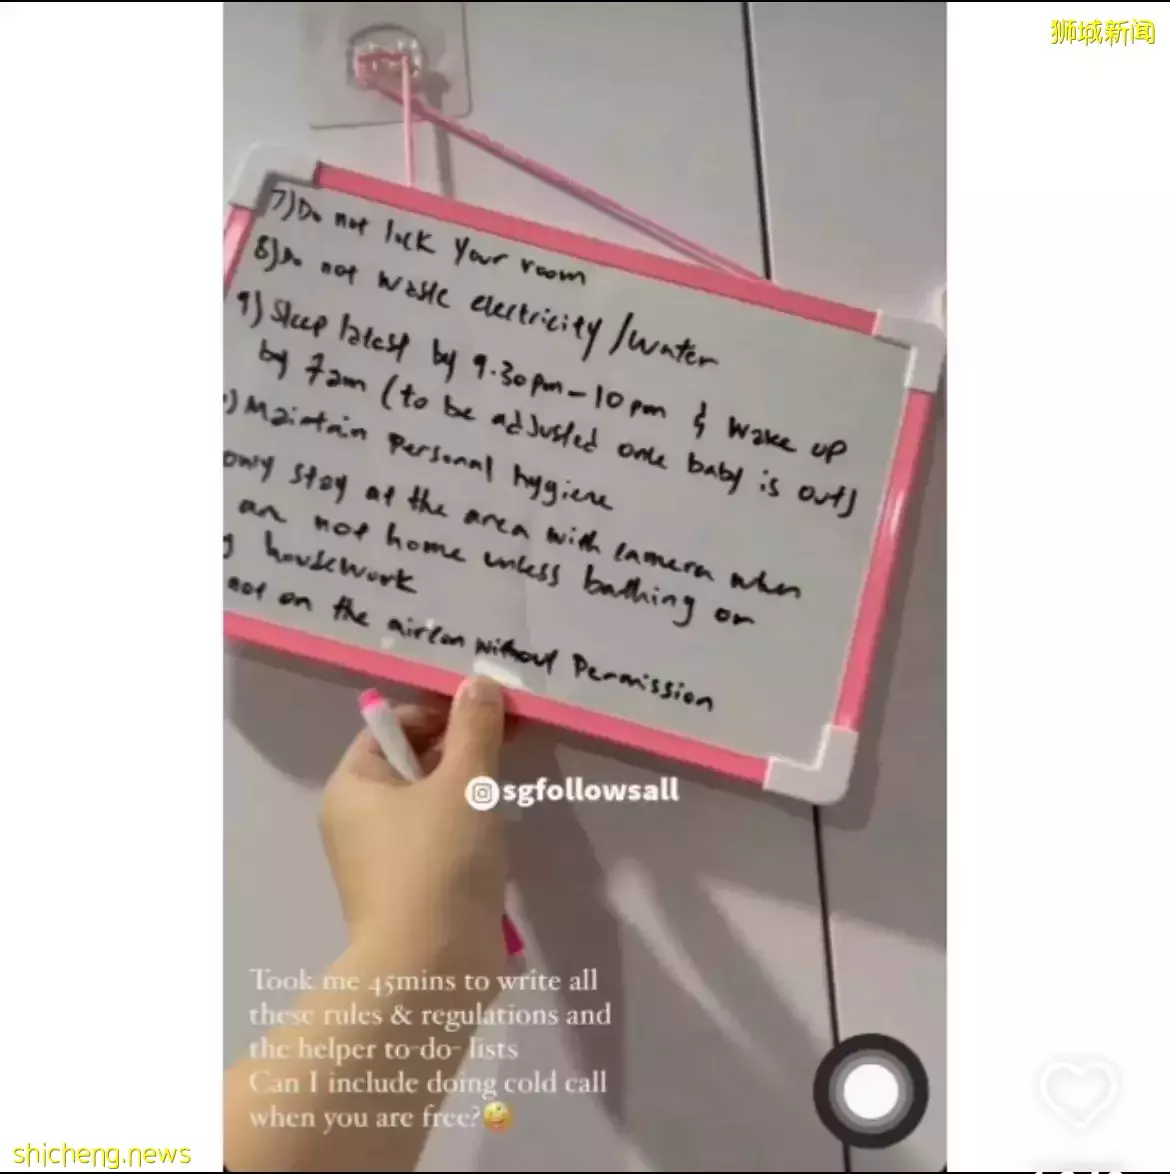 狮城新闻
7) Do not lock your room
8) Do not waste electricity/water
9) Sleep latest by 9.30pm - 10pm & wake up
by 7am (to be adjusted once baby is out)
) Maintain personal hygiene
only stay at the area with camera when
are not home unless bathing or
g housework
not on the aircon without permission
sgfollowsall
Took me 45mins to write all
these rules & regulations and
the helper to-do- lists
Can I include doing cold call
when you are free?
shicheng.news